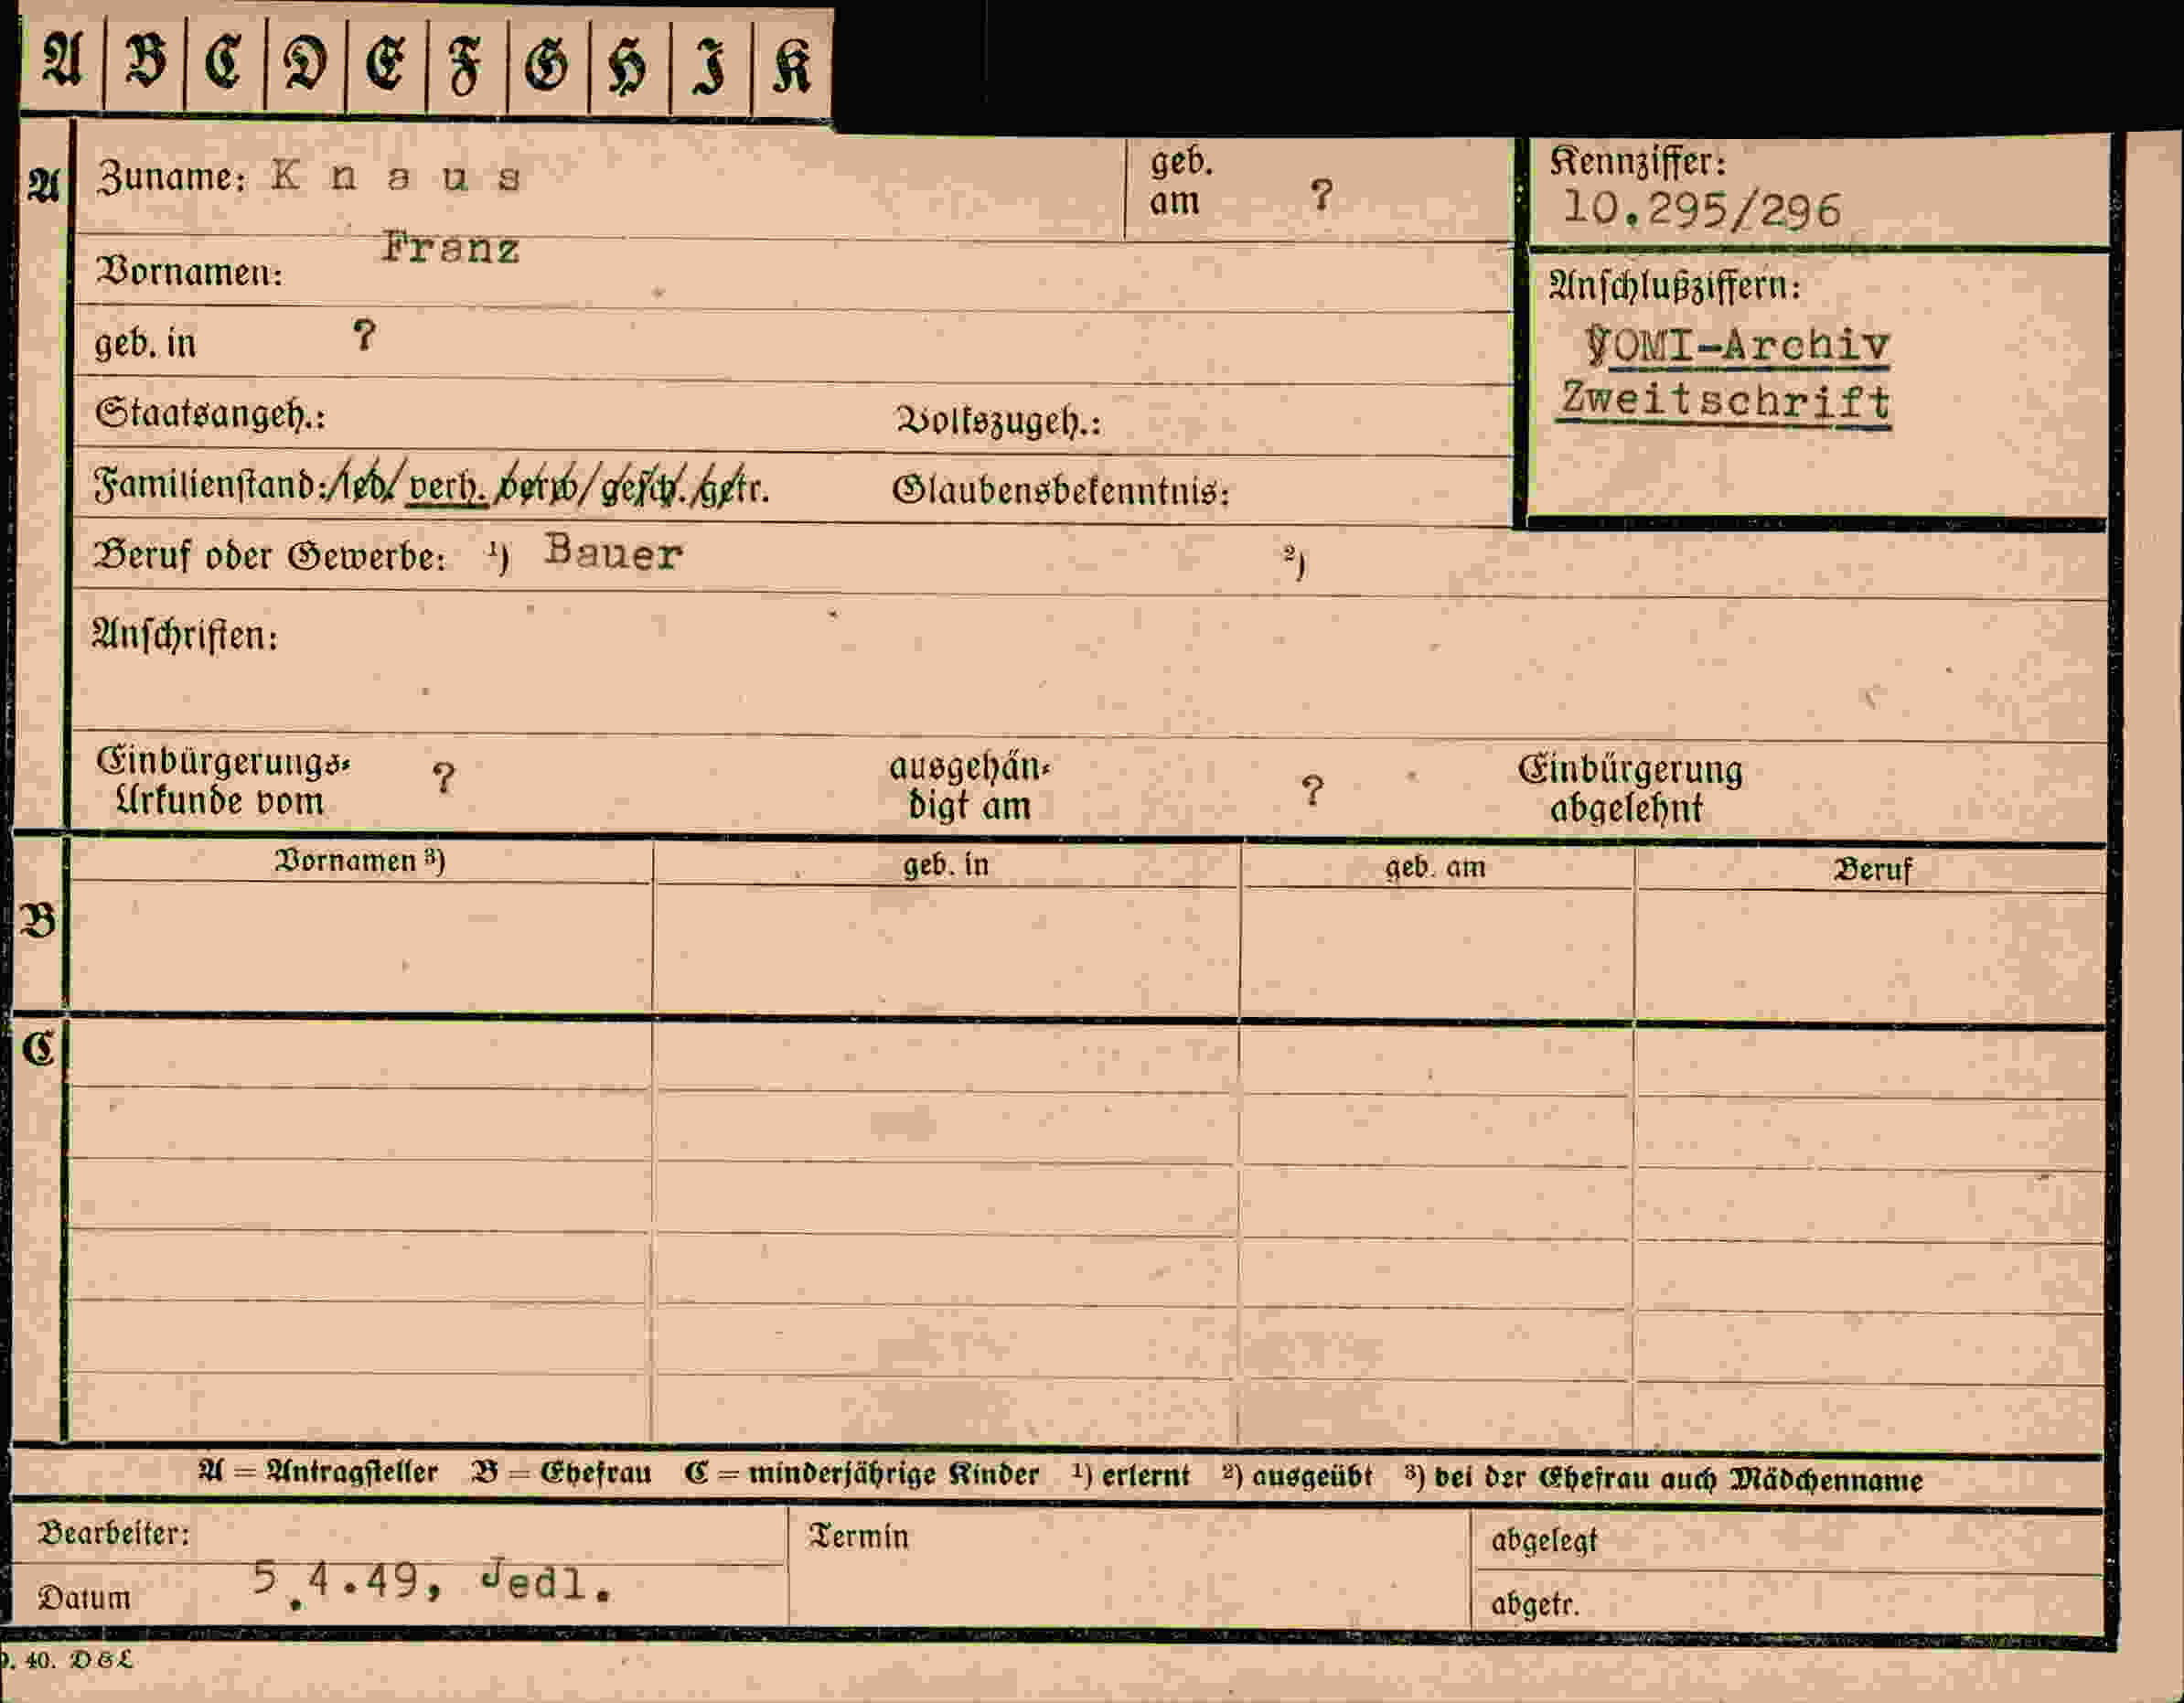 A B C D E F G H I K
A Zuname: K n a u s geb. am ?
Kennziffer: 10.295/296
Vornamen: Franz
Anschlußziffern:
VOMI-Archiv
Zweitschrift
geb. in ?
Staatsangeh.: Volkszugeh.:
Familienstand: led/ verh. verw/ gesch./getr. Glaubensbekenntnis:
Beruf oder Gewerbe: ¹) Bauer ²)
Anschriften:
Einbürgerungs-
Urkunde vom ?
ausgehän-
digt am ?
Einbürgerung
abgelehnt
Vornamen ³) geb. in geb. am Beruf
B
C
A = Antragsteller B = Ehefrau C = minderjährige Kinder ¹) erlernt ²) ausgeübt ³) bei der Ehefrau auch Mädchenname
Bearbeiter: Termin abgelegt
Datum 5.4.49, Jedl. abgetr.
40. D & L